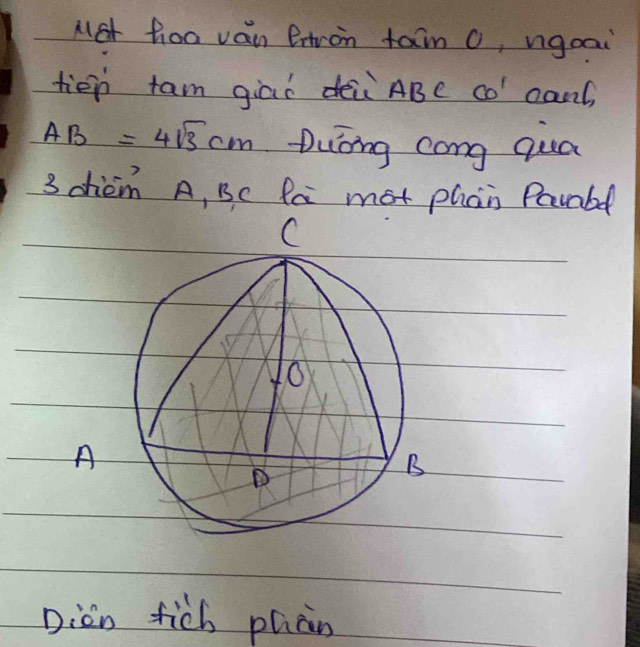 Một hoa văn h.tròn tâm O, ngoại
tiếp tam giác đều ABC có cạnh
AB = 4√3 cm. Đường cong qua
3 điểm A, B, C là một phần Parabol
C
O
A
D
B
Diện tích phần